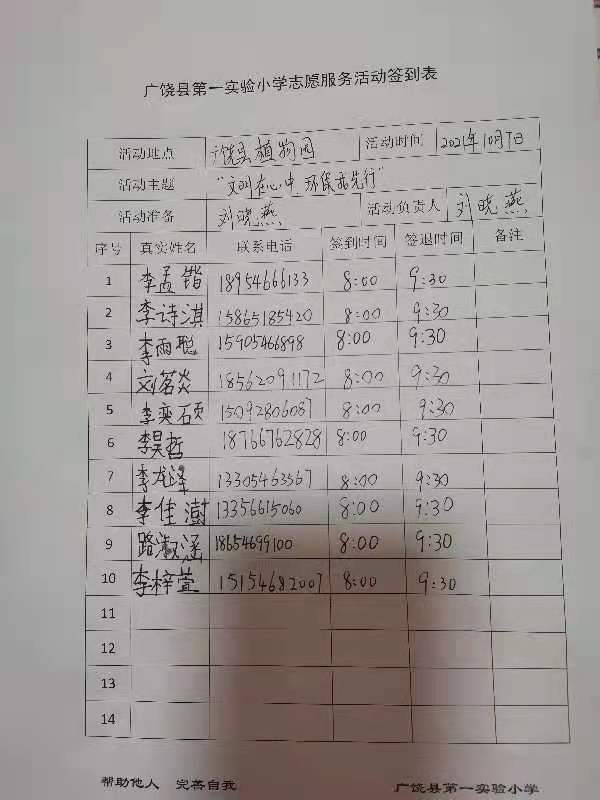 广饶县第一实验小学志愿服务活动签到表
活动地点 广饶县植物园 活动时间 2021年10月7日
活动主题 "文明在心中 环保我先行"
活动准备 刘晓燕 活动负责人 刘晓燕
序号 真实姓名 联系电话 签到时间 签退时间 备注
1 李孟锴 18954666133 8:00 9:30
2 李诗淇 15865185420 8:00 9:30
3 李雨聪 15905466898 8:00 9:30
4 刘茗炎 18562091172 8:00 9:30
5 李奕硕 15092806087 8:00 9:30
6 李昊哲 18766762828 8:00 9:30
7 李龙泽 13305463567 8:00 9:30
8 李佳澍 13356615060 8:00 9:30
9 路淑涵 18654699100 8:00 9:30
10 李梓萱 15154682007 8:00 9:30
11
12
13
14
帮助他人 完善自我 广饶县第一实验小学